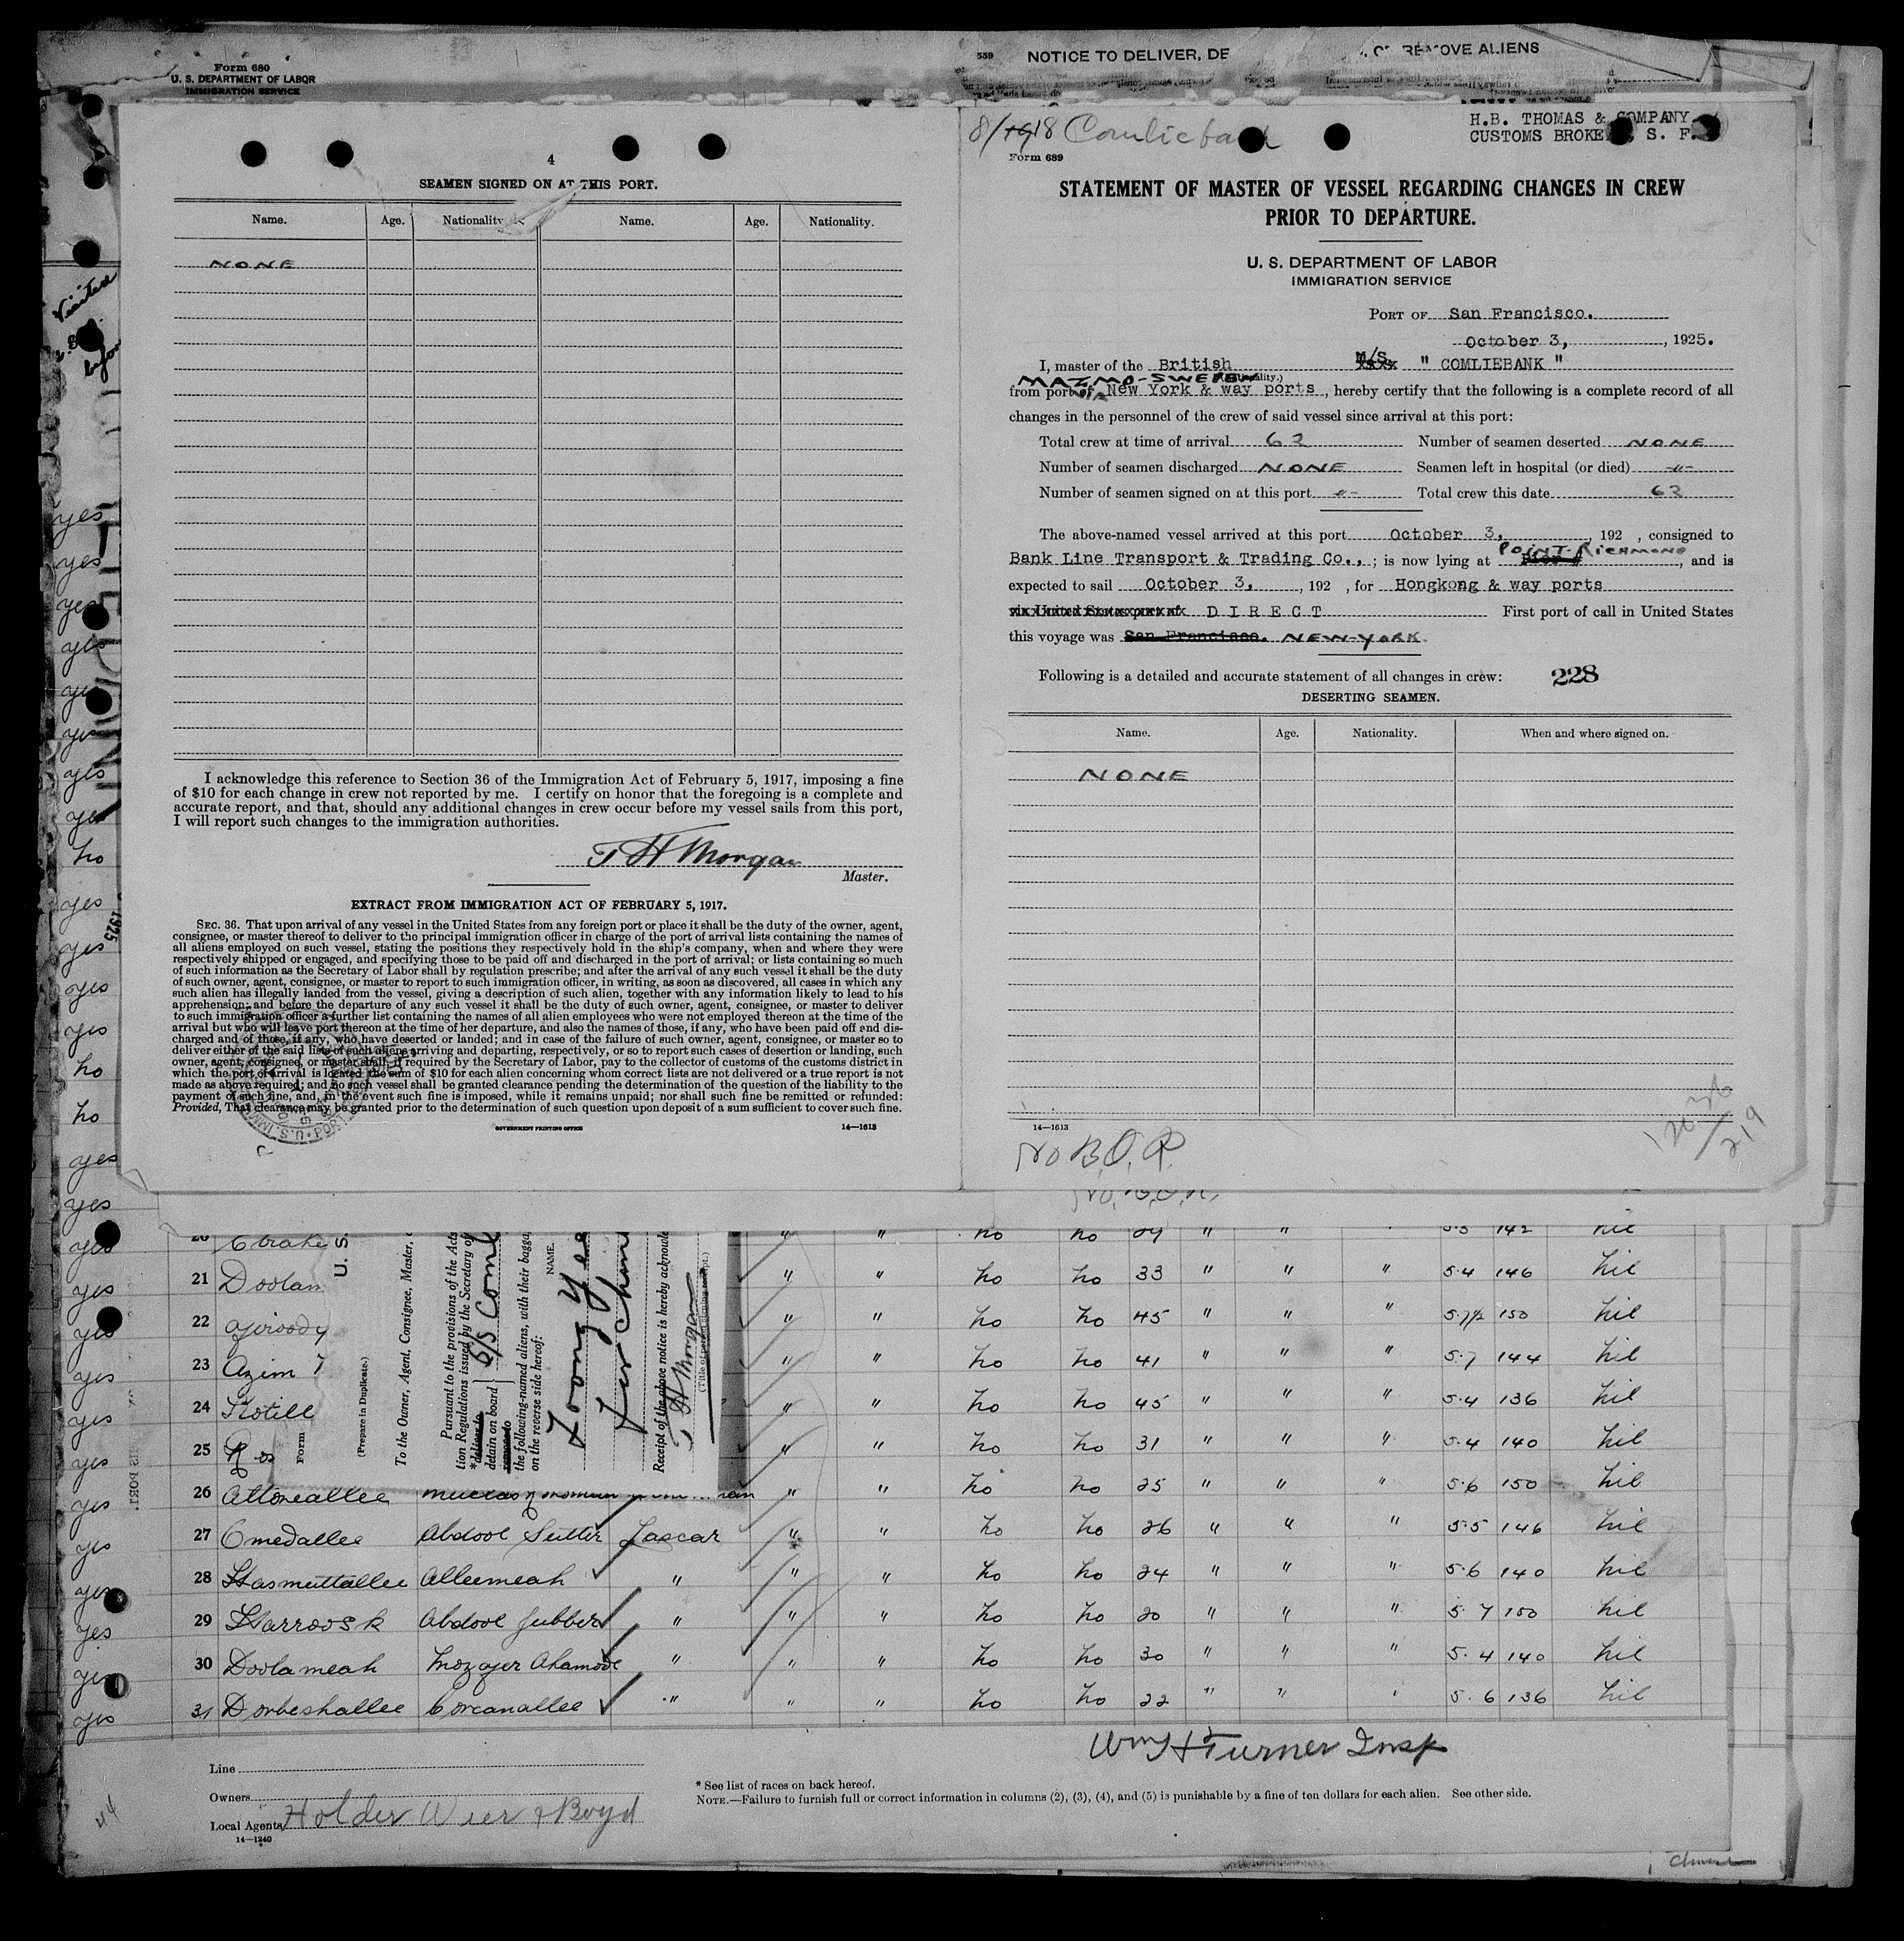 Form 680
U. S. DEPARTMENT OF LABOR
IMMIGRATION SERVICE
559 NOTICE TO DELIVER, DE
OR REMOVE ALIENS
4
SEAMEN SIGNED ON AT THIS PORT.
Name. Age. Nationality. Name. Age. Nationality.
NONE
I acknowledge this reference to Section 36 of the Immigration Act of February 5, 1917, imposing a fine
of $10 for each change in crew not reported by me. I certify on honor that the foregoing is a complete and
accurate report, and that, should any additional changes in crew occur before my vessel sails from this port,
I will report such changes to the immigration authorities.
T H Morgan
Master.
EXTRACT FROM IMMIGRATION ACT OF FEBRUARY 5, 1917.
SEC. 36. That upon arrival of any vessel in the United States from any foreign port or place it shall be the duty of the owner, agent,
consignee, or master thereof to deliver to the principal immigration officer in charge of the port of arrival lists containing the names of
all aliens employed on such vessel, stating the positions they respectively hold in the ship's company, when and where they were
respectively shipped or engaged, and specifying those to be paid off and discharged in the port of arrival; or lists containing so much
of such information as the Secretary of Labor shall by regulation prescribe; and after the arrival of any such vessel it shall be the duty
of such owner, agent, consignee, or master to report to such immigration officer, in writing, as soon as discovered, all cases in which any
such alien has illegally landed from the vessel, giving a description of such alien, together with any information likely to lead to his
apprehension; and before the departure of any such vessel it shall be the duty of such owner, agent, consignee, or master to deliver
to such immigration officer a further list containing the names of all alien employees who were not employed thereon at the time of the
arrival but who will leave port thereon at the time of her departure, and also the names of those, if any, who have been paid off and dis-
charged and of those, if any, who have deserted or landed; and in case of the failure of such owner, agent, consignee, or master so to
deliver either of the said lists of such aliens arriving and departing, respectively, or so to report such cases of desertion or landing, such
owner, agent, consignee, or master shall, if required by the Secretary of Labor, pay to the collector of customs of the customs district in
which the port of arrival is located the sum of $10 for each alien concerning whom correct lists are not delivered or a true report is not
made as above required; and no such vessel shall be granted clearance pending the determination of the question of the liability to the
payment of such fine, and, in the event such fine is imposed, while it remains unpaid; nor shall such fine be remitted or refunded:
Provided, That clearance may be granted prior to the determination of such question upon deposit of a sum sufficient to cover such fine.
GOVERNMENT PRINTING OFFICE 14—1613
H.B. THOMAS & COMPANY
CUSTOMS BROKE S. F.
Form 689
STATEMENT OF MASTER OF VESSEL REGARDING CHANGES IN CREW
PRIOR TO DEPARTURE.
U. S. DEPARTMENT OF LABOR
IMMIGRATION SERVICE
PORT OF San Francisco.
October 3, , 1925.
I, master of the British M/S " COMLIEBANK "
from port New York & way ports, hereby certify that the following is a complete record of all
changes in the personnel of the crew of said vessel since arrival at this port:
Total crew at time of arrival 62 Number of seamen deserted NONE
Number of seamen discharged NONE Seamen left in hospital (or died) -"-
Number of seamen signed on at this port -"- Total crew this date 62
The above-named vessel arrived at this port October 3, , 192 , consigned to
POINT-RICHMOND
Bank Line Transport & Trading Co., ; is now lying at Pier # , and is
expected to sail October 3, , 192 , for Hongkong & way ports
via United States port of DIRECT First port of call in United States
this voyage was San Francisco. NEW-YORK.
Following is a detailed and accurate statement of all changes in crew: 228
DESERTING SEAMEN.
Name. Age. Nationality. When and where signed on.
NONE
14—1613
No B.O.R.
U. S.
(Prepare in Duplicate.)
Form
To the Owner, Agent, Consignee, Master,
Pursuant to the provisions of the Acts
tion Regulations issued by the Secretary of
*deliver to
detain on board S/S Coml
remove to
the following-named aliens, with their bagga
on the reverse side hereof:
NAME.
Receipt of the above notice is hereby acknowle
T H Morgan
21 Doolam " " no no 33 " " " 5.4 146 nil
22 " " no no 45 " " " 5.7½ 150 nil
23 Azim " " no no 41 " " " 5.7 144 nil
24 " " no no 45 " " " 5.4 136 nil
25 " " no no 31 " " " 5.4 140 nil
26 Attoreallee " " no no 25 " " " 5.6 150 nil
27 Omedallee Abdool Lascar " " no no 26 " " " 5.5 146 nil
28 Hasmuttallee Alleemeah " " " no no 24 " " " 5.6 140 nil
29 Abdool Jubber " " " no no 20 " " " 5.7 150 nil
30 Doolameah Mozafer Ahamode " " " no no 30 " " " 5.4 140 nil
31 Dorbeshallee Corcanallee " " " no no 22 " " " 5.6 136 nil
Wm H Turner Insp
Line
* See list of races on back hereof.
Owners
NOTE.—Failure to furnish full or correct information in columns (2), (3), (4), and (5) is punishable by a fine of ten dollars for each alien. See other side.
Local Agents Holder Weir & Boyd
14—1240